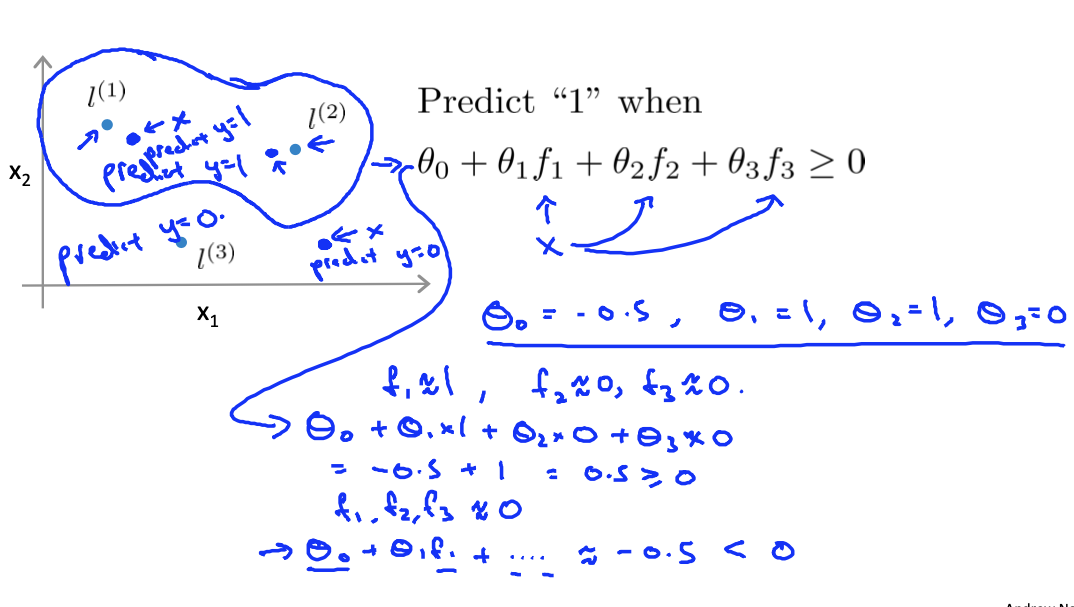 l^(1)
← x
predict y=1
l^(2)
predict y=1
x₂
predict y=0.
l^(3)
← x
predict y=0
x₁
Predict “1” when
θ₀ + θ₁f₁ + θ₂f₂ + θ₃f₃ ≥ 0
x
θ₀ = -0.5, θ₁ = 1, θ₂ = 1, θ₃ = 0
f₁ ≈ 1, f₂ ≈ 0, f₃ ≈ 0.
→ θ₀ + θ₁×1 + θ₂×0 + θ₃×0
= -0.5 + 1 = 0.5 ≥ 0
f₁, f₂, f₃ ≈ 0
→ θ₀ + θ₁f₁ + .... ≈ -0.5 < 0
Andrew